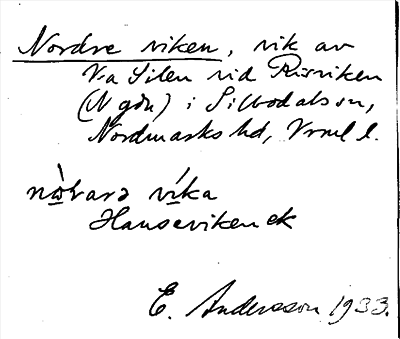 Nordre viken, vik av
V:a Silen vid Rörviken
(N gdn) i Silbodals sn,
Nordmarks hd, Vrml l.
nòrarə víka
Hanseviken ek
E. Andersson 1933.